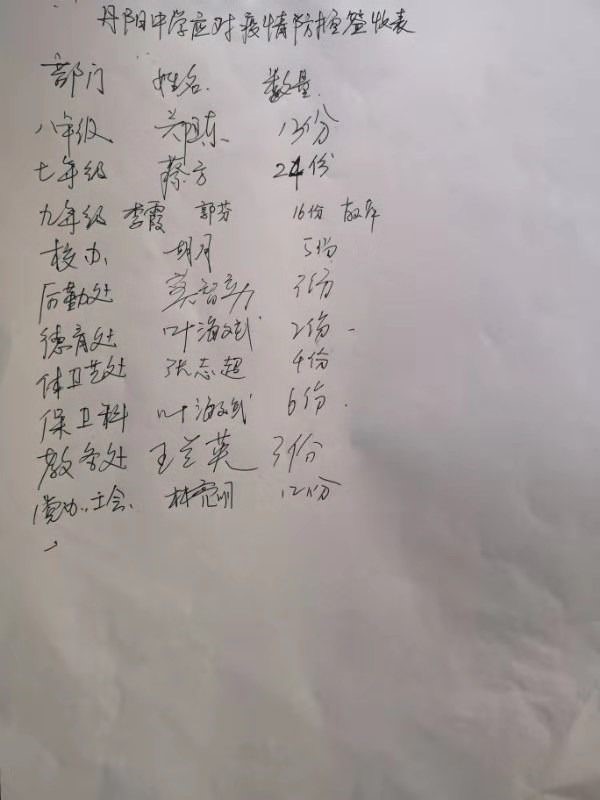 丹阳中学应对疫情防控签收表
部门 姓名 数量
八年级 13份
七年级 蔡方 24份
九年级 李霞 郭芬 16份
校办 胡月 5份
后勤处 莫智立 3份
德育处 叶海斌 2份
体卫艺处 张志超 4份
保卫科 叶海斌 6份
教务处 王兰英 3份
党办、工会 林亮明 12份